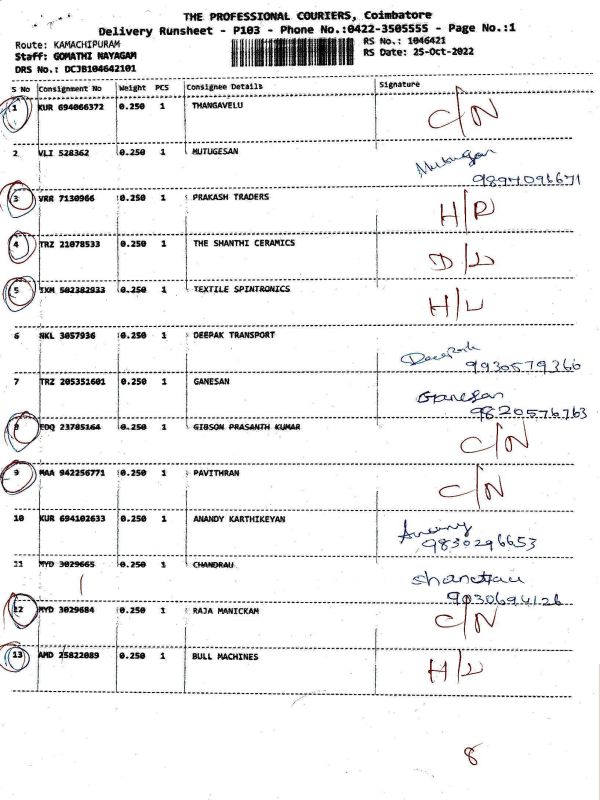 THE PROFESSIONAL COURIERS, Coimbatore
Delivery Runsheet - P103 - Phone No.:0422-3505555 - Page No.:1
Route: KAMACHIPURAM
RS No.: 1046421
Staff: GOMATHI NAYAGAM
RS Date: 25-Oct-2022
DRS No.: DCJB104642101
S No Consignment No Weight PCS Consignee Details Signature
1 KUR 694066372 0.250 1 THANGAVELU C/N
2 VLI 528362 0.250 1 MUTUGESAN Mutugan
9894096671
3 VRR 7130966 0.250 1 PRAKASH TRADERS H/R
4 TRZ 21078533 0.250 1 THE SHANTHI CERAMICS D/L
5 TXM 502382933 0.250 1 TEXTILE SPINTRONICS H/L
6 NKL 3057936 0.250 1 DEEPAK TRANSPORT Deepak
9930579366
7 TRZ 205351601 0.250 1 GANESAN Ganesan
9820576763
8 EDQ 23785164 0.250 1 GIBSON PRASANTH KUMAR C/N
9 MAA 942256771 0.250 1 PAVITHRAN C/N
10 KUR 694102633 0.250 1 ANANDY KARTHIKEYAN
9830296653
11 MYD 3029665 0.250 1 CHANDRAU
9030694126
12 MYD 3029684 0.250 1 RAJA MANICKAM C/N
13 AMD 25822089 0.250 1 BULL MACHINES H/L
8